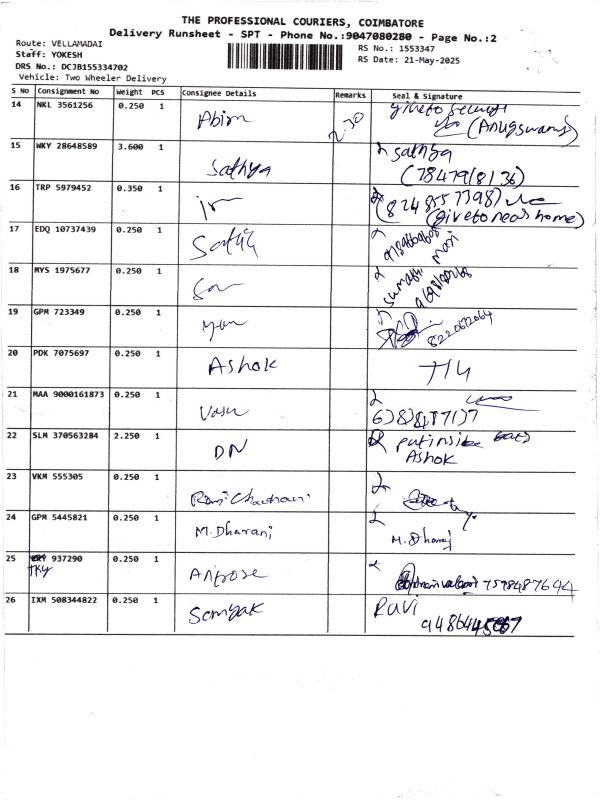 THE PROFESSIONAL COURIERS, COIMBATORE
Delivery Runsheet - SPT - Phone No.:9047080280 - Page No.:2
Route: VELLAMADAI
Staff: YOKESH
DRS No.: DCJB155334702
Vehicle: Two Wheeler Delivery
RS No.: 1553347
RS Date: 21-May-2025
S No Consignment No Weight PCS Consignee Details Remarks Seal & Signature
14 NKL 3561256 0.250 1 2.30 give to
15 WKY 28648589 3.600 1 Sathya Sathya
(7847918136)
16 TRP 5979452 0.350 1 (8248557398)
(give to near home)
17 EDQ 10737439 0.250 1 mari
18 MYS 1975677 0.250 1 Sumathi
19 GPM 723349 0.250 1 8220672064
20 PDK 7075697 0.250 1 Ashok
21 MAA 9000161873 0.250 1 Vasu
22 SLM 370563284 2.250 1 DN put inside
Ashok
23 VKM 555305 0.250 1
24 GPM 5445821 0.250 1 M.Dharani M.Dharani
25 937290 0.250 1 Anprose 7598487694
TKY
26 IXM 508344822 0.250 1 Samyak Ravi